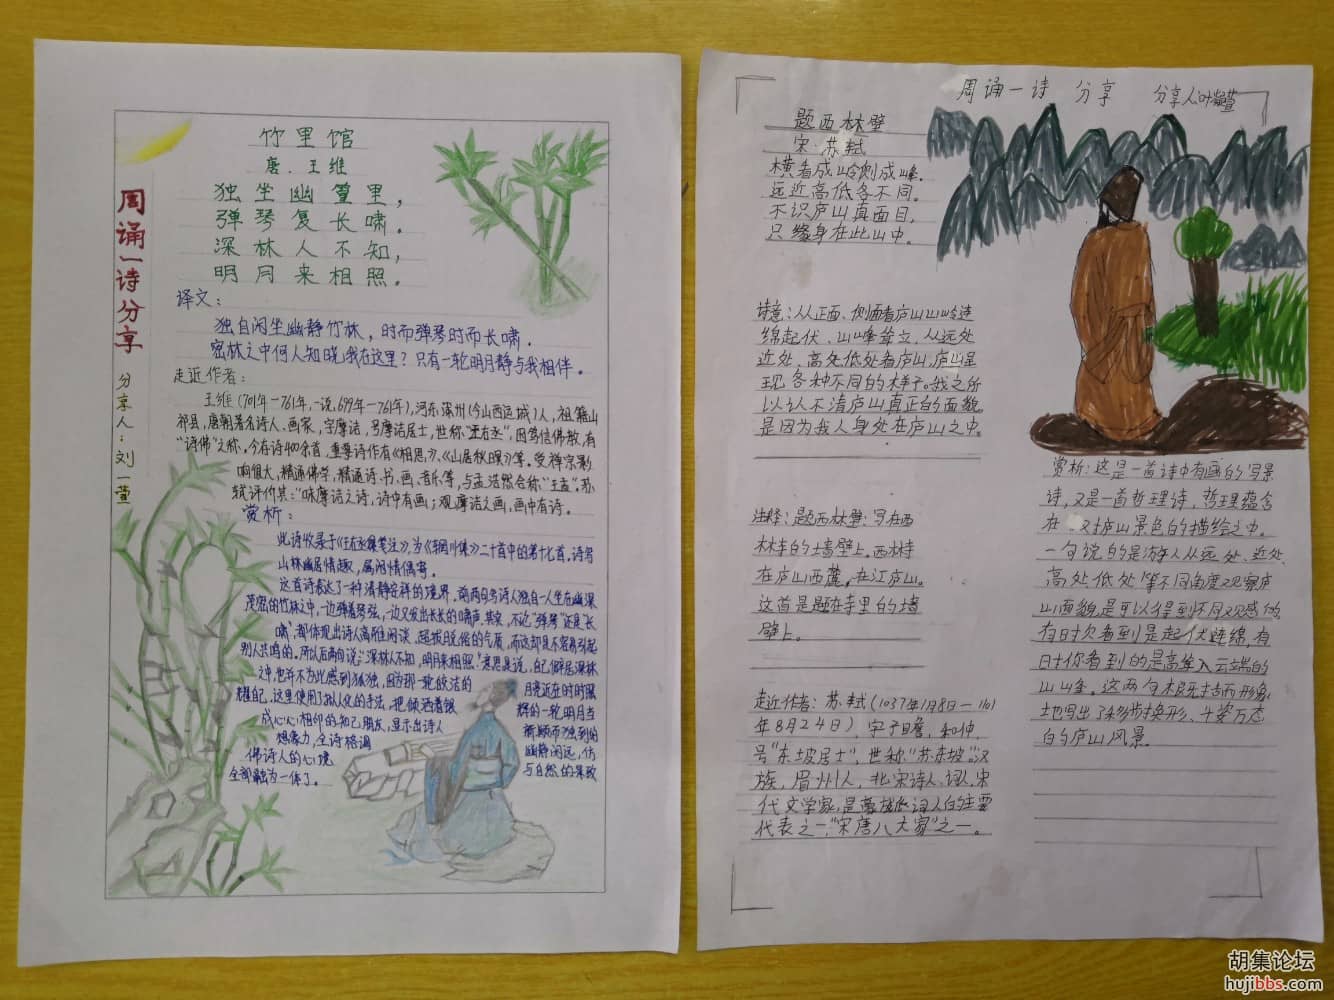 周诵一诗分享
分享人：刘一萱
竹里馆
唐．王维
独坐幽篁里，
弹琴复长啸．
深林人不知，
明月来相照．
译文：
独自闲坐幽静竹林，时而弹琴时而长啸．
密林之中何人知晓我在这里？只有一轮明月静与我相伴．
走近作者：
王维(701年一761年，一说，699年一761年)，河东蒲州(今山西运城)人，祖籍山
祁县，唐朝著名诗人、画家，字摩诘，号摩诘居士，世称"王右丞"，因笃信佛教，有
"诗佛"之称．今存诗400余首，重要诗作有《相思》、《山居秋暝》等．受禅宗影
响很大，精通佛学，精通诗、书、画、音乐等，与孟浩然合称"王孟"．苏
轼评价其："味摩诘之诗，诗中有画；观摩诘之画，画中有诗．
赏析：
此诗收录于《王右丞集笺注》，为《辋川集》二十首中的第十七首．诗写
山林幽居情趣，属闲情偶寄．
这首诗表达了一种清静安祥的境界．前两句写诗人独自一人坐在幽深
茂密的竹林之中，一边弹着琴弦，一边又发出长长的啸声．其实，不论"弹琴"还是"长
啸"，都体现出诗人高雅闲淡、超拔脱俗的气质，而这却是不容易引起
别人共鸣的．所以后两句说："深林人不知，明月来相照．"意思是说，自己僻居深林
之中，也并不为此感到孤独，因为那一轮皎洁的月亮还在时时照
耀自己．这里使用了拟人化的手法，把倾洒着银辉的一轮明月当
成心心相印的知己朋友，显示出诗人新颖而独到的
想像力．全诗格调幽静闲远，仿
佛诗人的心境与自然的景致
全部融为一体了．
周诵一诗 分享 分享人:叶紫萱
题西林壁
宋·苏轼
横看成岭侧成峰．
远近高低各不同．
不识庐山真面目，
只缘身在此山中．
诗意：从正面、侧面看庐山山岭连
绵起伏、山峰耸立，从远处
近处、高处低处看庐山，庐山呈
现各种不同的样子．我之所
以认不清庐山真正的面貌．
是因为我人身处在庐山之中．
注释：题西林壁：写在西
林寺的墙壁上．西林寺
在庐山西麓，在江庐山．
这首是题在寺里的墙
壁上．
走近作者：苏轼(1037年1月8日一1101
年8月24日)，字子瞻，和仲，
号"东坡居士"，世称"苏东坡"．汉
族，眉州人，北宋诗人、词人，宋
代文学家，是豪放派词人的主要
代表之一，"宋唐八大家"之一．
赏析：这是一首诗中有画的写景
诗，又是一首哲理诗，哲理蕴含
在对庐山景色的描绘之中．
一句说的是游人从远处、近处、
高处低处等不同角度观察庐
山面貌是可以得到不同观感的．
有时你看到是起伏连绵，有
时你看到的是高耸入云端的
山峰．这两句概括而形象
地写出了移步换形、千姿万态
的庐山风景．
胡集论坛
hujibbs.com